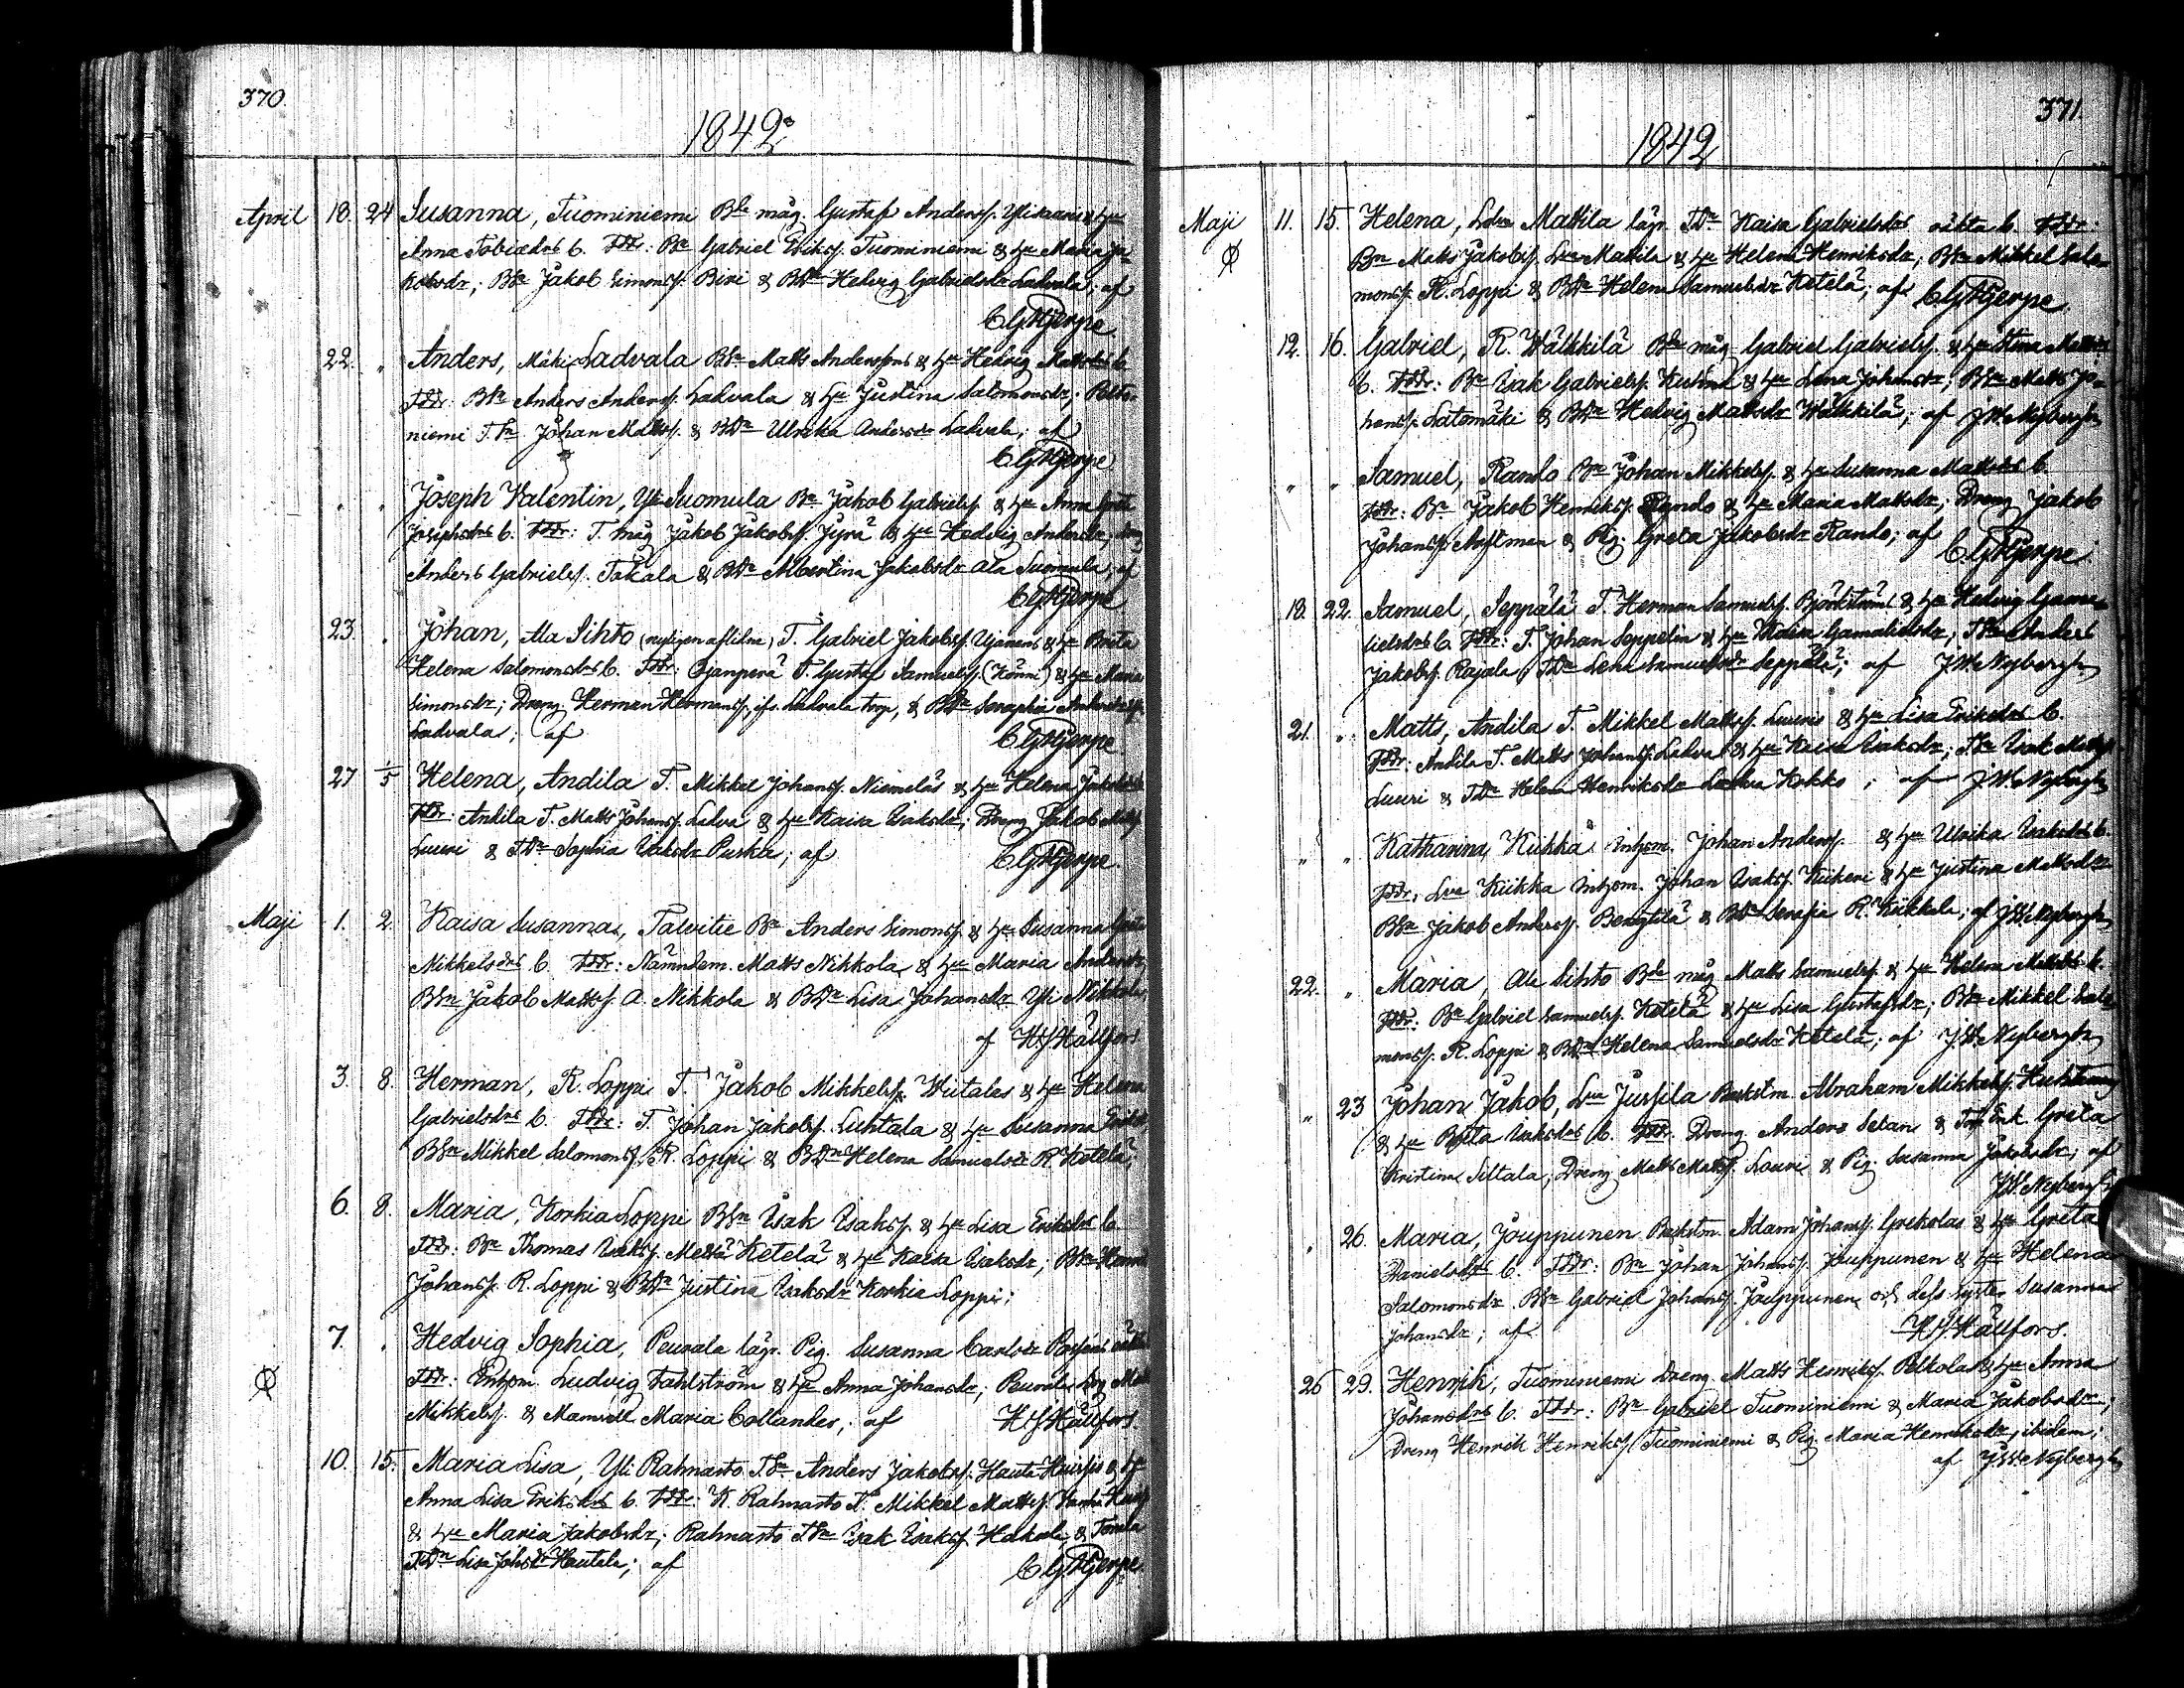 370.
1842
April 18. 24 Susanna, Tuominiemi Bde måg. Gustaf Anderss. & Hu
Anna Tobiædrs b. Fddr: Bn Gabriel Erikss. Tuominiemi & Hu Maria Ja-
kobsdr; BSn Jakob Simonss. & BDn Hedvig Gabrielsdr Ladvala; af
CGHjerpe
22. " Anders, Mäki Ladvala BSn Matts Anderssons & Hu Hedvig Mattsdrs b.
Fddr: BSn Anders Anderss. Ladvala & Hu Justina Salomonsdr; Pelto-
niemi T.Sn Johan Mattss. & BDn Ulrika Andersdr Ladvala; af
CGHjerpe
" " Joseph Valentin, Yli Suomula Bn Jakob Gabrielss. & Hu Anna Greta
Josephsdrs b. Fddr: T. måg Jakob Jakobss. Jyrä & Hu Hedvig Andersdr; dreng
Anders Gabrielss. Takala & BDn Albertina Jakobsdr Ala Suomula; af
CGHjerpe
23. " Johan, Ala Sihto (nyligen aflidne) T. Gabriel Jakobss. Ujanens & Hu Brita
Helena Salomonsdrs b. Fddr: Ojanperä T. Gustaf Samuelss. (Könni) & Hu Maria
Simonsdr; Dreng Herman Hermanss., ifr. Ladvala torp, & BDn Seraphia Andersdr
Ladvala; af CGHjerpe
27 1/5 Helena, Andila T. Mikkel Johanss. Niemeläs & Hu Helena Jakobsdrs
Fddr: Andila T. Matts Johanss. Ladva & Hu Kaisa Isaksdr; Dreng Jakob Mattss.
Luuri & TDn Sophia Isaksdr Puska; af CGHjerpe.
Maji 1. 2. Kaisa Susanna, Talvitie Bn Anders Simonss. & Hu Susanna Greta
Mikkelsdrs b. Fddr: Nämndem. Matts Nikkola & Hu Maria Andersdr;
BSn Jakob Mattss. A. Nikkola & BDn Lisa Johansdr Yli Nikkola;
af HJHällfors
3. 8. Herman, R. Loppi T. Jakob Mikkelss. Wiitalas & Hu Helena
Gabrielsdrs b. Fddr: T. Johan Jakobss. Luhtala & Hu Susanna Eriksdr
BSn Mikkel Salomonss. R. Loppi & BDn Helena Samuelsdr R. Ketelä;
6. 8. Maria, Korkia Loppi BSn Isak Isakss. & Hu Lisa Eriksdrs b.
Fddr: Bn Thomas Isakss. Metsä Ketelä & Hu Kaisa Isaksdr; BSn Henrik
Johanss. R. Loppi & BDn Justina Isaksdr Korkia Loppi;
7. " Hedvig Sophia, Peurala lägr. Pig. Susanna Carlsdr oäkta
Fddr: Inhom. Ludvig Fahlström & Hu Anna Johansdr; Peurala
Mikkelss. & Mamsell Maria Collander; af HJHällfors
10. 15. Maria Lisa, Yli Rahnasto T.Sn Anders Jakobss. Hauta & Hu
Anna Lisa Eriksdrs b. Fddr: K. Rahnasto T. Mikkel Mattss.
& Hu Maria Jakobsdr; Rahnasto TSn Isak Isakss. Hakala, &
TDn Lisa Johsdr Hautala; af CGHjerpe
371.
1842
Maji 11. 15. Helena, Mattila lägr. TDn Kaisa Gabrielsdrs oäkta b. Fddr:
Bn Matts Jakobss. Mattila & Hu Helena Henriksdr; BSn Mikkel Salo-
monss. R. Loppi & BDn Helena Samuelsdr Ketelä; af CGHjerpe.
12. 16. Gabriel, R. Wälkkilä Bde måg Gabriel Gabrielss. & Hu Stina Mattsdrs
b. Fddr: Bn Isak Gabrielss. & Hu Lena Johansdr; BSn Matts Jo-
hanss. Latomäki & BDn Hedvig Mattsdr Wälkkilä; af JWNybergh
" " Samuel, Rando Bn Johan Mikkelss. & Hu Susanna Mattsdrs b.
Fddr: Bn Jakob Henrikss. Rando & Hu Maria Mattsdr; Dreng Jakob
Johanss. & Pig. Greta Jakobsdr Rando; af CGHjerpe.
18. 22. Samuel, Seppälä T. Herman Samuelss. Björkström & Hu Hedvig Gama-
lielsdrs b. Fddr: T. Johan Seppelin & Hu Kaisa Gamalielsdr; TSn Anders
Jakobss. Rajala, TDn Lena Samuelsdr Seppälä; af JWNybergh
21. " Matts, Andila T. Mikkel Mattss. Luuris & Hu Lisa Eriksdrs b.
Fddr: Andila T. Matts Johanss. Ladva & Hu Kaisa Isaksdr; TSn Isak Mattss.
Luuri & TDn Helena Henriksdr Kokko; af JWNybergh
" " Katharina, Kiikka inhom. Johan Anderss. & Hu Ulrika Isaksdrs b.
Fddr, Kiikka inhom. Johan Isakss. Kiikeri & Hu Justina Mattsdr
BSn Jakob Anderss. Bengtilä & BDn Serafia R. Kiikkala; af JWNybergh
22. " Maria, Ala Sihto Bde måg Matts Samuelss. & Hu Helena Mattsdrs b.
Fddr: Bn Gabriel Samuelss. Ketelä & Hu Lisa Gustafsdr; BSn Mikkel Salo-
monss. R. Loppi & BDn Helena Samuelsdr Ketelä; af JWNybergh
" 23 Johan Jakob, Jussila Backstm. Abraham Mikkelss.
& Hu Brita Isaksdrs b. Fddr. Dreng Anders Setan & Enk. Greta
Kristina Siltala, Dreng Matts Mattss. Louri & Pig. Susanna Jakobsdr; af
JWNybergh
" 26. Maria, Jouppunen Backstm. Adam Johanss. Grekolas & Hu Greta
Danielsdrs b. Fddr: Bn Johan Johanss. Jouppunen & Hu Helena
Salomonsdr. BSn Gabriel Johanss. Jouppunen och dess syster Susanna
Johansdr; af HJHällfors.
26 29. Henrik, Tuominiemi dreng Matts Henrikss. Pelkola & Hu Anna
Johansdrs b. Fddr: Bn Gabriel Tuominiemi & Maria Jakobsdr;
Dreng Henrik Henrikss. Tuominiemi & Pig. Maria Henriksdr, ibidem;
af JWNybergh